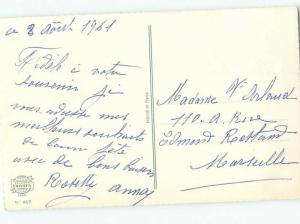 ce 8 août 1961
Fidèle à votre
souvenir j'ai
vous adresse mes
meilleurs souhaits
de bonne fête
avec de bons baisers
Rosette
Madame Vve
110 - A. Rue
Edmond Rostand
Marseille
N° 469